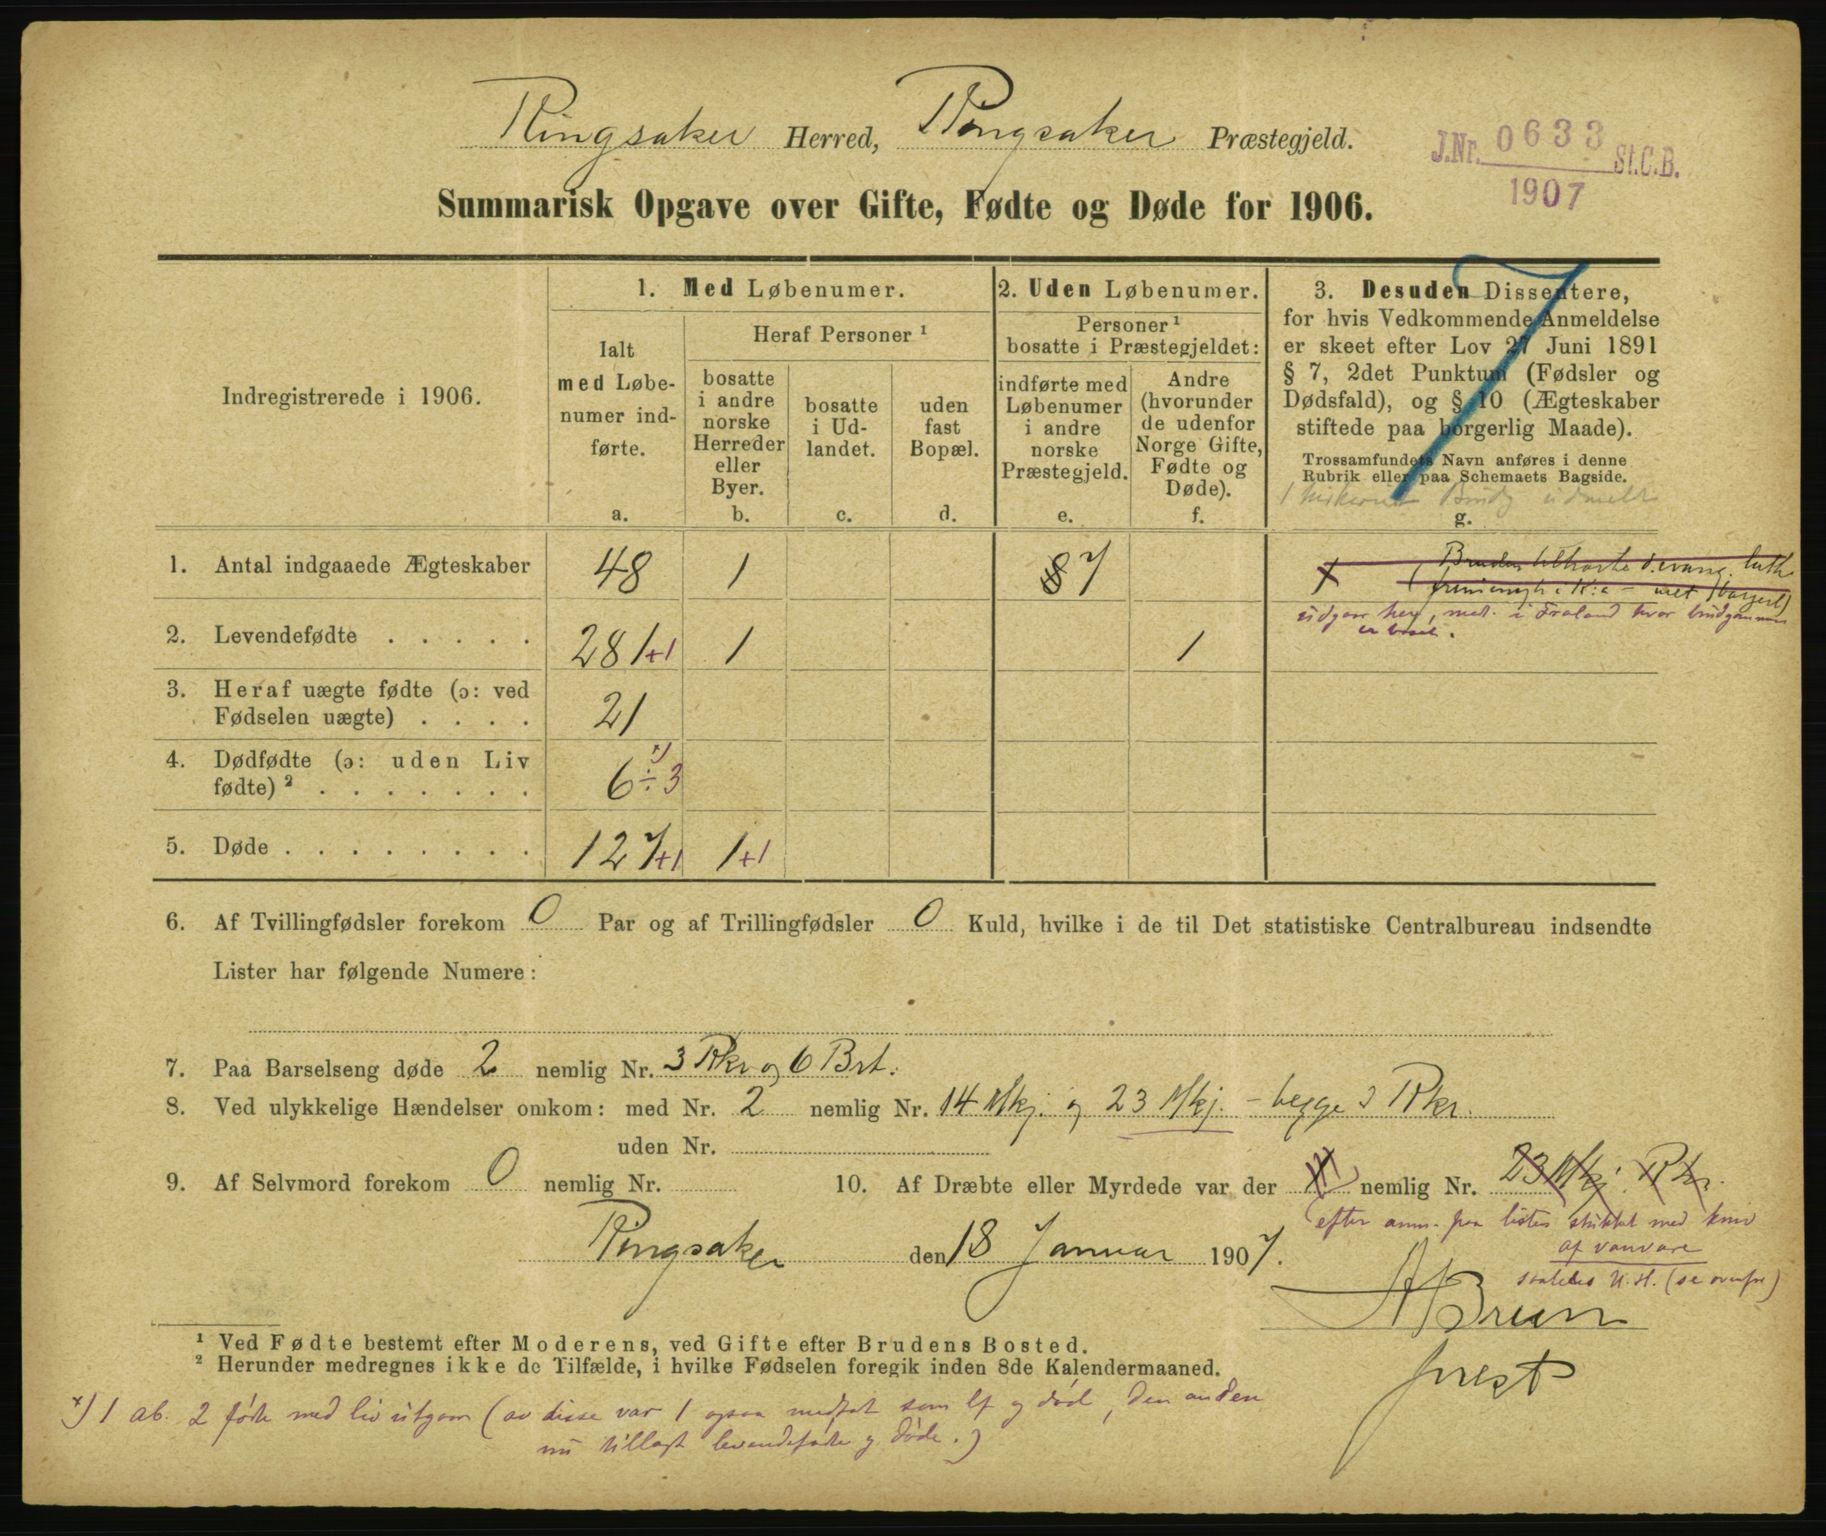 Ringsaker Herred, Ringsaker Præstegjeld.
J.Nr. 0633 St.C.B.
1907
Summarisk Opgave over Gifte, Fødte og Døde for 1906.
Indregistrerede i 1906.
1. Med Løbenumer.
Ialt
med Løbe-
numer ind-
førte.
a.
Heraf Personer ¹
bosatte
i andre
norske
Herreder
eller
Byer.
b.
bosatte
i Ud-
landet.
c.
uden
fast
Bopæl.
d.
2. Uden Løbenumer.
Personer ¹
bosatte i Præstegjeldet:
indførte med
Løbenumer
i andre
norske
Præstegjeld.
e.
Andre
(hvorunder
de udenfor
Norge Gifte,
Fødte og
Døde).
f.
3. Desuden Dissentere,
for hvis Vedkommende Anmeldelse
er skeet efter Lov 27 Juni 1891
§ 7, 2det Punktum (Fødsler og
Dødsfald), og § 10 (Ægteskaber
stiftede paa borgerlig Maade).
Trossamfundets Navn anføres i denne
Rubrik eller paa Schemaets Bagside.
g.
1. Antal indgaaede Ægteskaber 48 1 8 7
Bruden tilhørte d. evang. luth
udgaar her, med. i Froland hvor brudgommen
er bosat.
2. Levendefødte . . . . . 281 +1 1 1
3. Heraf uægte fødte (ɔ: ved
Fødselen uægte) . . . . 21
4. Dødfødte (ɔ: uden Liv
fødte) ² . . . . . . . 6 ÷ 3 *)
5. Døde . . . . . . . . 127 +1 1 +1
6. Af Tvillingfødsler forekom 0 Par og af Trillingfødsler 0 Kuld, hvilke i de til Det statistiske Centralbureau indsendte
Lister har følgende Numere:
7. Paa Barselseng døde 2 nemlig Nr. 3 Rkr og 6 Brt.
8. Ved ulykkelige Hændelser omkom: med Nr. 2 nemlig Nr. 14 Mkj. og 23 Mkj. - begge i Rkr.
uden Nr.
9. Af Selvmord forekom 0 nemlig Nr.
10. Af Dræbte eller Myrdede var der 1 nemlig Nr. 23 Mkj. Rkr.
efter anm. paa listen stukket med kniv
af vanvare
saaledes U.H. (se ovenfor)
Ringsaker den 18 Januar 1907.
A Bruun
prest
¹ Ved Fødte bestemt efter Moderens, ved Gifte efter Brudens Bosted.
² Herunder medregnes ikke de Tilfælde, i hvilke Fødselen foregik inden 8de Kalendermaaned.
*) 1 ab. 2 føde med liv udgaar (av disse var 1 ogsaa medtat som lf og død, den anden
nu tillagt levendefødte og døde.)